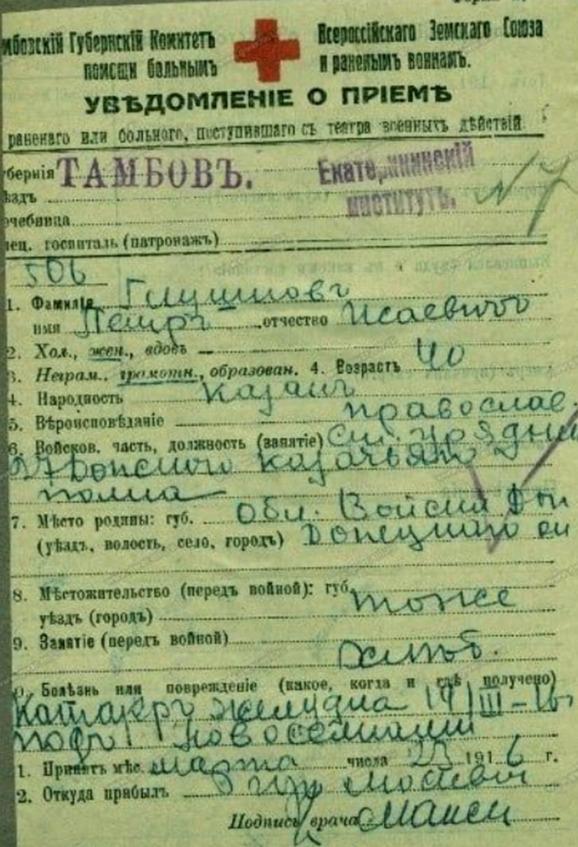 мбовскій Губернскій Комитетъ Всероссійскаго Земскаго Союза
помощи больнымъ и раненымъ воинамъ.
УВѢДОМЛЕНІЕ О ПРІЕМѢ
раненаго или больного, поступившаго съ театра военныхъ дѣйствій
убернія ТАМБОВЪ. Екатерининскій
ѣздъ институтъ. N 7
ечебница
пец. госпиталь (патронажъ)
506
1. Фамилія Глушковъ
имя Петръ отчество Исаевичъ
2. Хол., жен., вдовъ
3. Неграм., грамотн., образован. 4. Возрастъ 40
4. Народность казакъ
5. Вѣроисповѣданіе православ.
6. Войсков. часть, должность (занятіе) ст. урядни
27 Донского казачьяго
полка
7. Мѣсто родины: губ. Обл. Войска Дон
(уѣздъ, волость, село, городъ) Донецкаго
8. Мѣстожительство (передъ войной): губ. тоже
уѣздъ (городъ)
9. Занятіе (передъ войной)
хлѣб.
0. Болѣзнь или поврежденіе (какое, когда и гдѣ получено)
Катарръ желудка 19/III-16
подъ
1. Принятъ мѣс. марта числа 25 1916 г.
2. Откуда прибылъ
Подпись врача